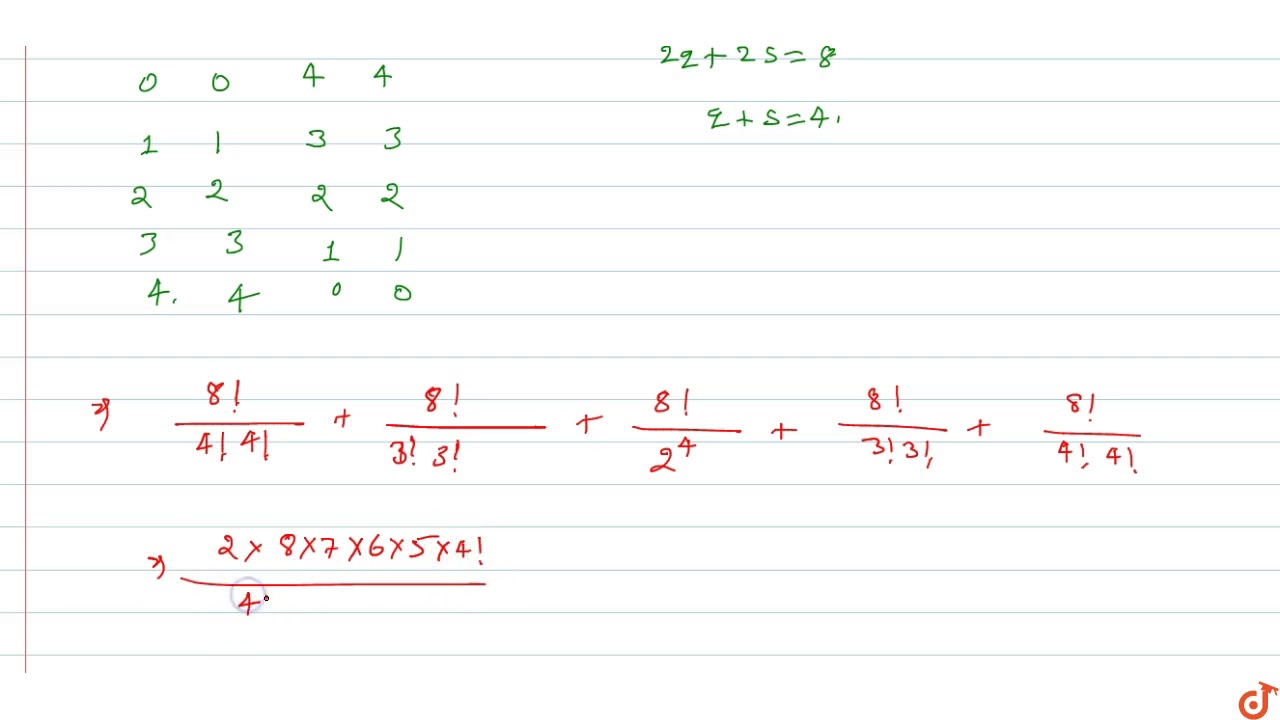 0 0 4 4
1 1 3 3
2 2 2 2
3 3 1 1
4. 4 0 0
2q + 2s = 8
q + s = 4.
⇒ 8!/(4! 4!) + 8!/(3! 3!) + 8!/2^4 + 8!/(3! 3!) + 8!/(4! 4!)
⇒ (2 × 8 × 7 × 6 × 5 × 4!)/4
d